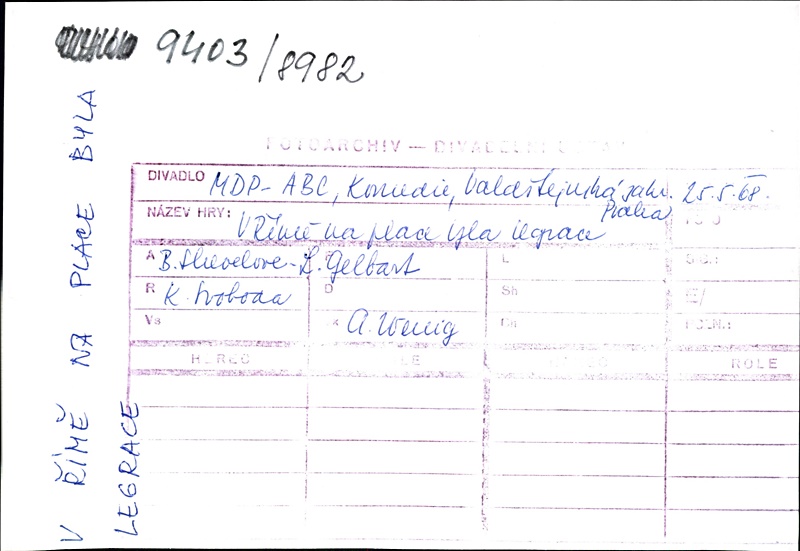 9403/8982
V ŘÍMĚ NA PLACE BYLA
LEGRACE
FOTOARCHIV — DIVADELNÍ ÚSTAV
DIVADLO MDP - ABC, Komedie, Valdštejnská zahr. 25.5.68.
Praha
NÁZEV HRY: V Římě na place byla legrace
A B. Shevelove - L. Gelbart L
R K. Svoboda D Sh
Vs K A. Wenig Ch
HEREC ROLE